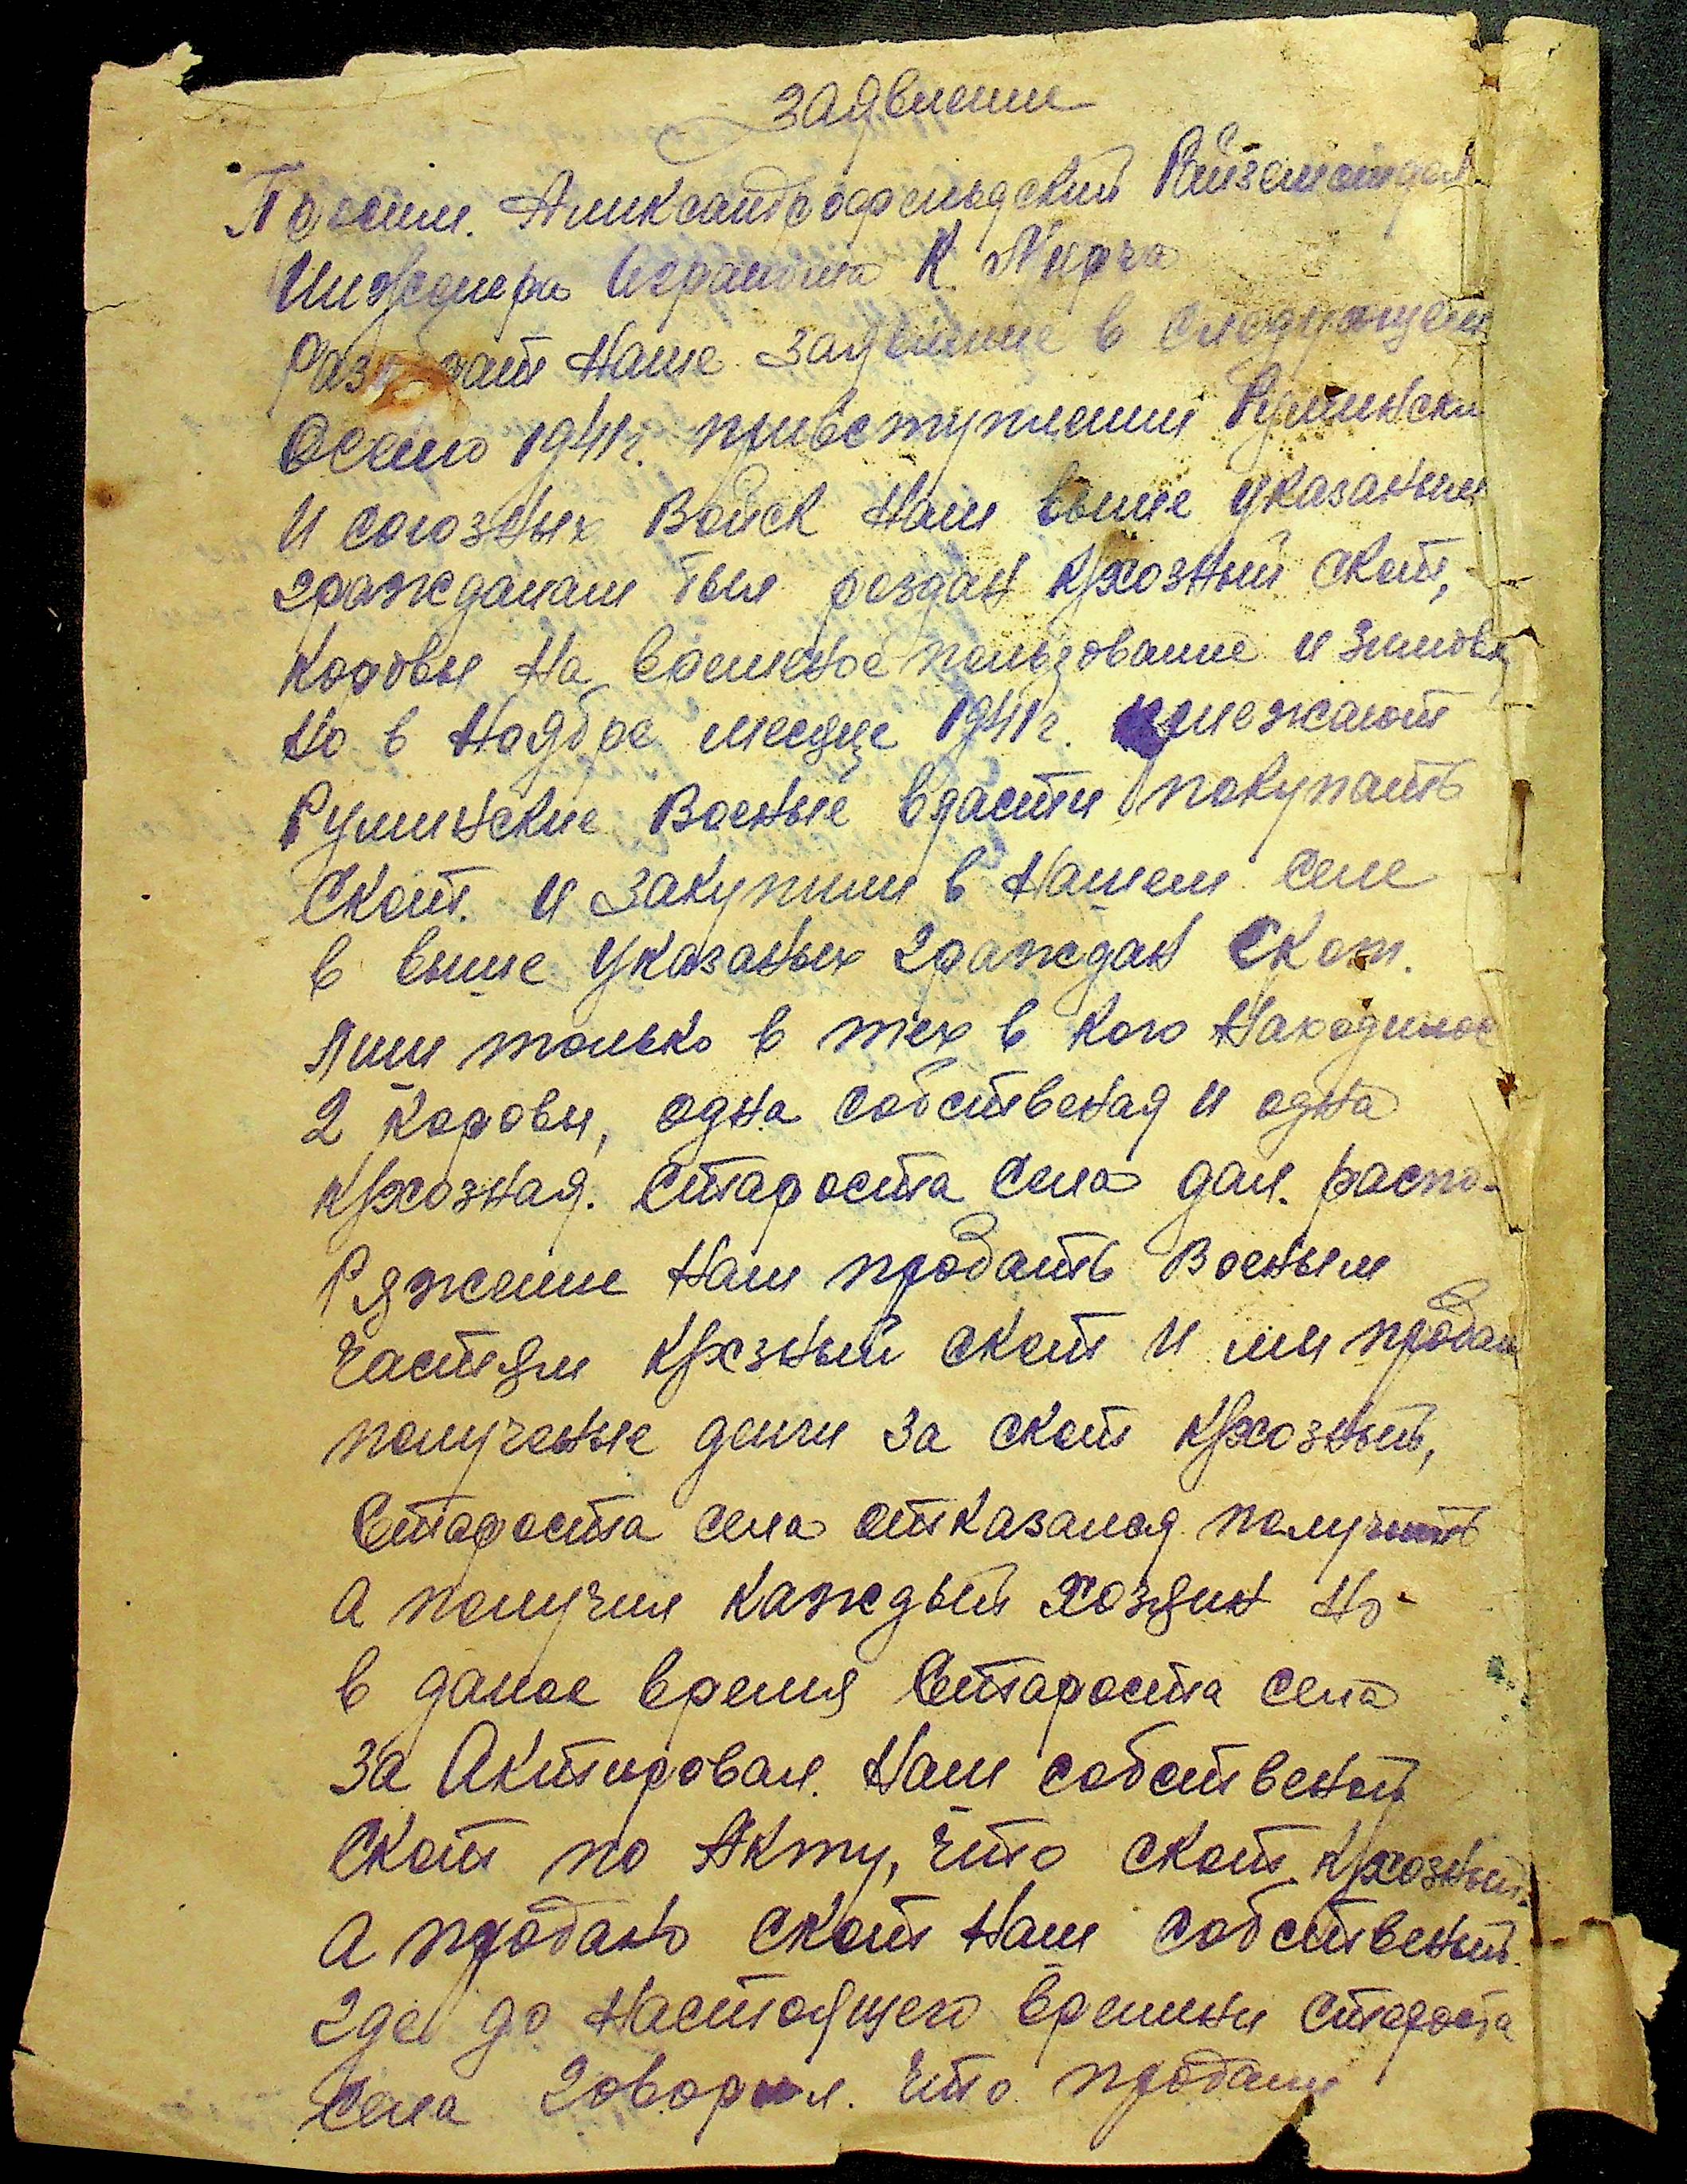 Заявление
Просим. Александрофельдский
Инженера Агранома К.
наше заявление в следующем
Осеню 1941г. привступлении Румински
и союзных Войск нам выше указаным
гражданам был роздан К/хозный скот,
коровы на временое пользование и зимовку
но в Ноябре месяце 1941г.
Руминские Военые власти покупать
Скот. и закупили в нашем селе
в выше указаных граждан Скот.
Лиш только в тех в кого находилос
2 коровы, одна собственая и одна
К/хозная. Староста села дал. распо-
ряжение нам продать военым
частям К/хзный скот и мы продали
полученые денги за скот К/хозный,
Староста села отказался получить
а получил каждый хозяин но
в даное время Староста села
За Актировал. нам собственый
Скот по Акту, что скот К/хозный.
а продано скот наш собственый.
где до настоящего времини староста
села говорил. что продали